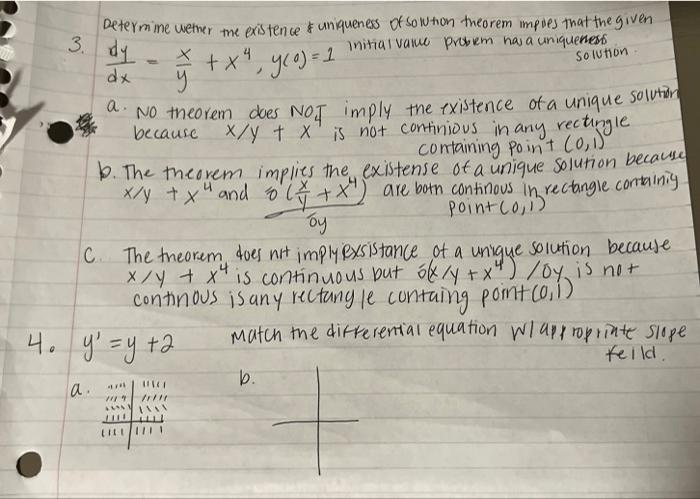 Determine wether the existence & uniqueness of solution theorem implies that the given
3. dy/dx = x/y + x⁴, y(0) = 1 initial value problem has a uniqueness solution.
a. No theorem does NOT imply the existence of a unique solution
because x/y + x⁴ is not continious in any rectingle
containing point (0,1)
b. The theorem implies the existense of a unique solution because
x/y + x⁴ and ∂(x/y + x⁴)/∂y are both continous in rectangle containiy
point (0,1)
C. The theorem does not imply exsistance of a unique solution because
x/y + x⁴ is continuous but ∂(x/y + x⁴)/∂y is not
continous is any rectangle containg point (0,1)
4. y' = y + 2 Match the differential equation w/ appropriate slope
feild.
a. b.